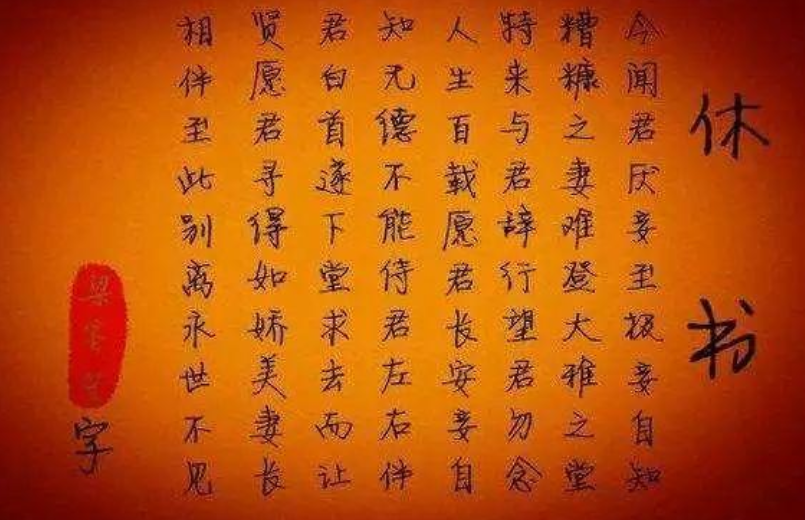 休书
今闻君厌妾至极妾自知
糟糠之妻难登大雅之堂
特来与君辞行望君勿念
人生百载愿君长安妾自
知无德不能侍君左右伴
君白首遂下堂求去而让
贤愿君寻得如娇美妻长
相伴至此别离永世不见
字